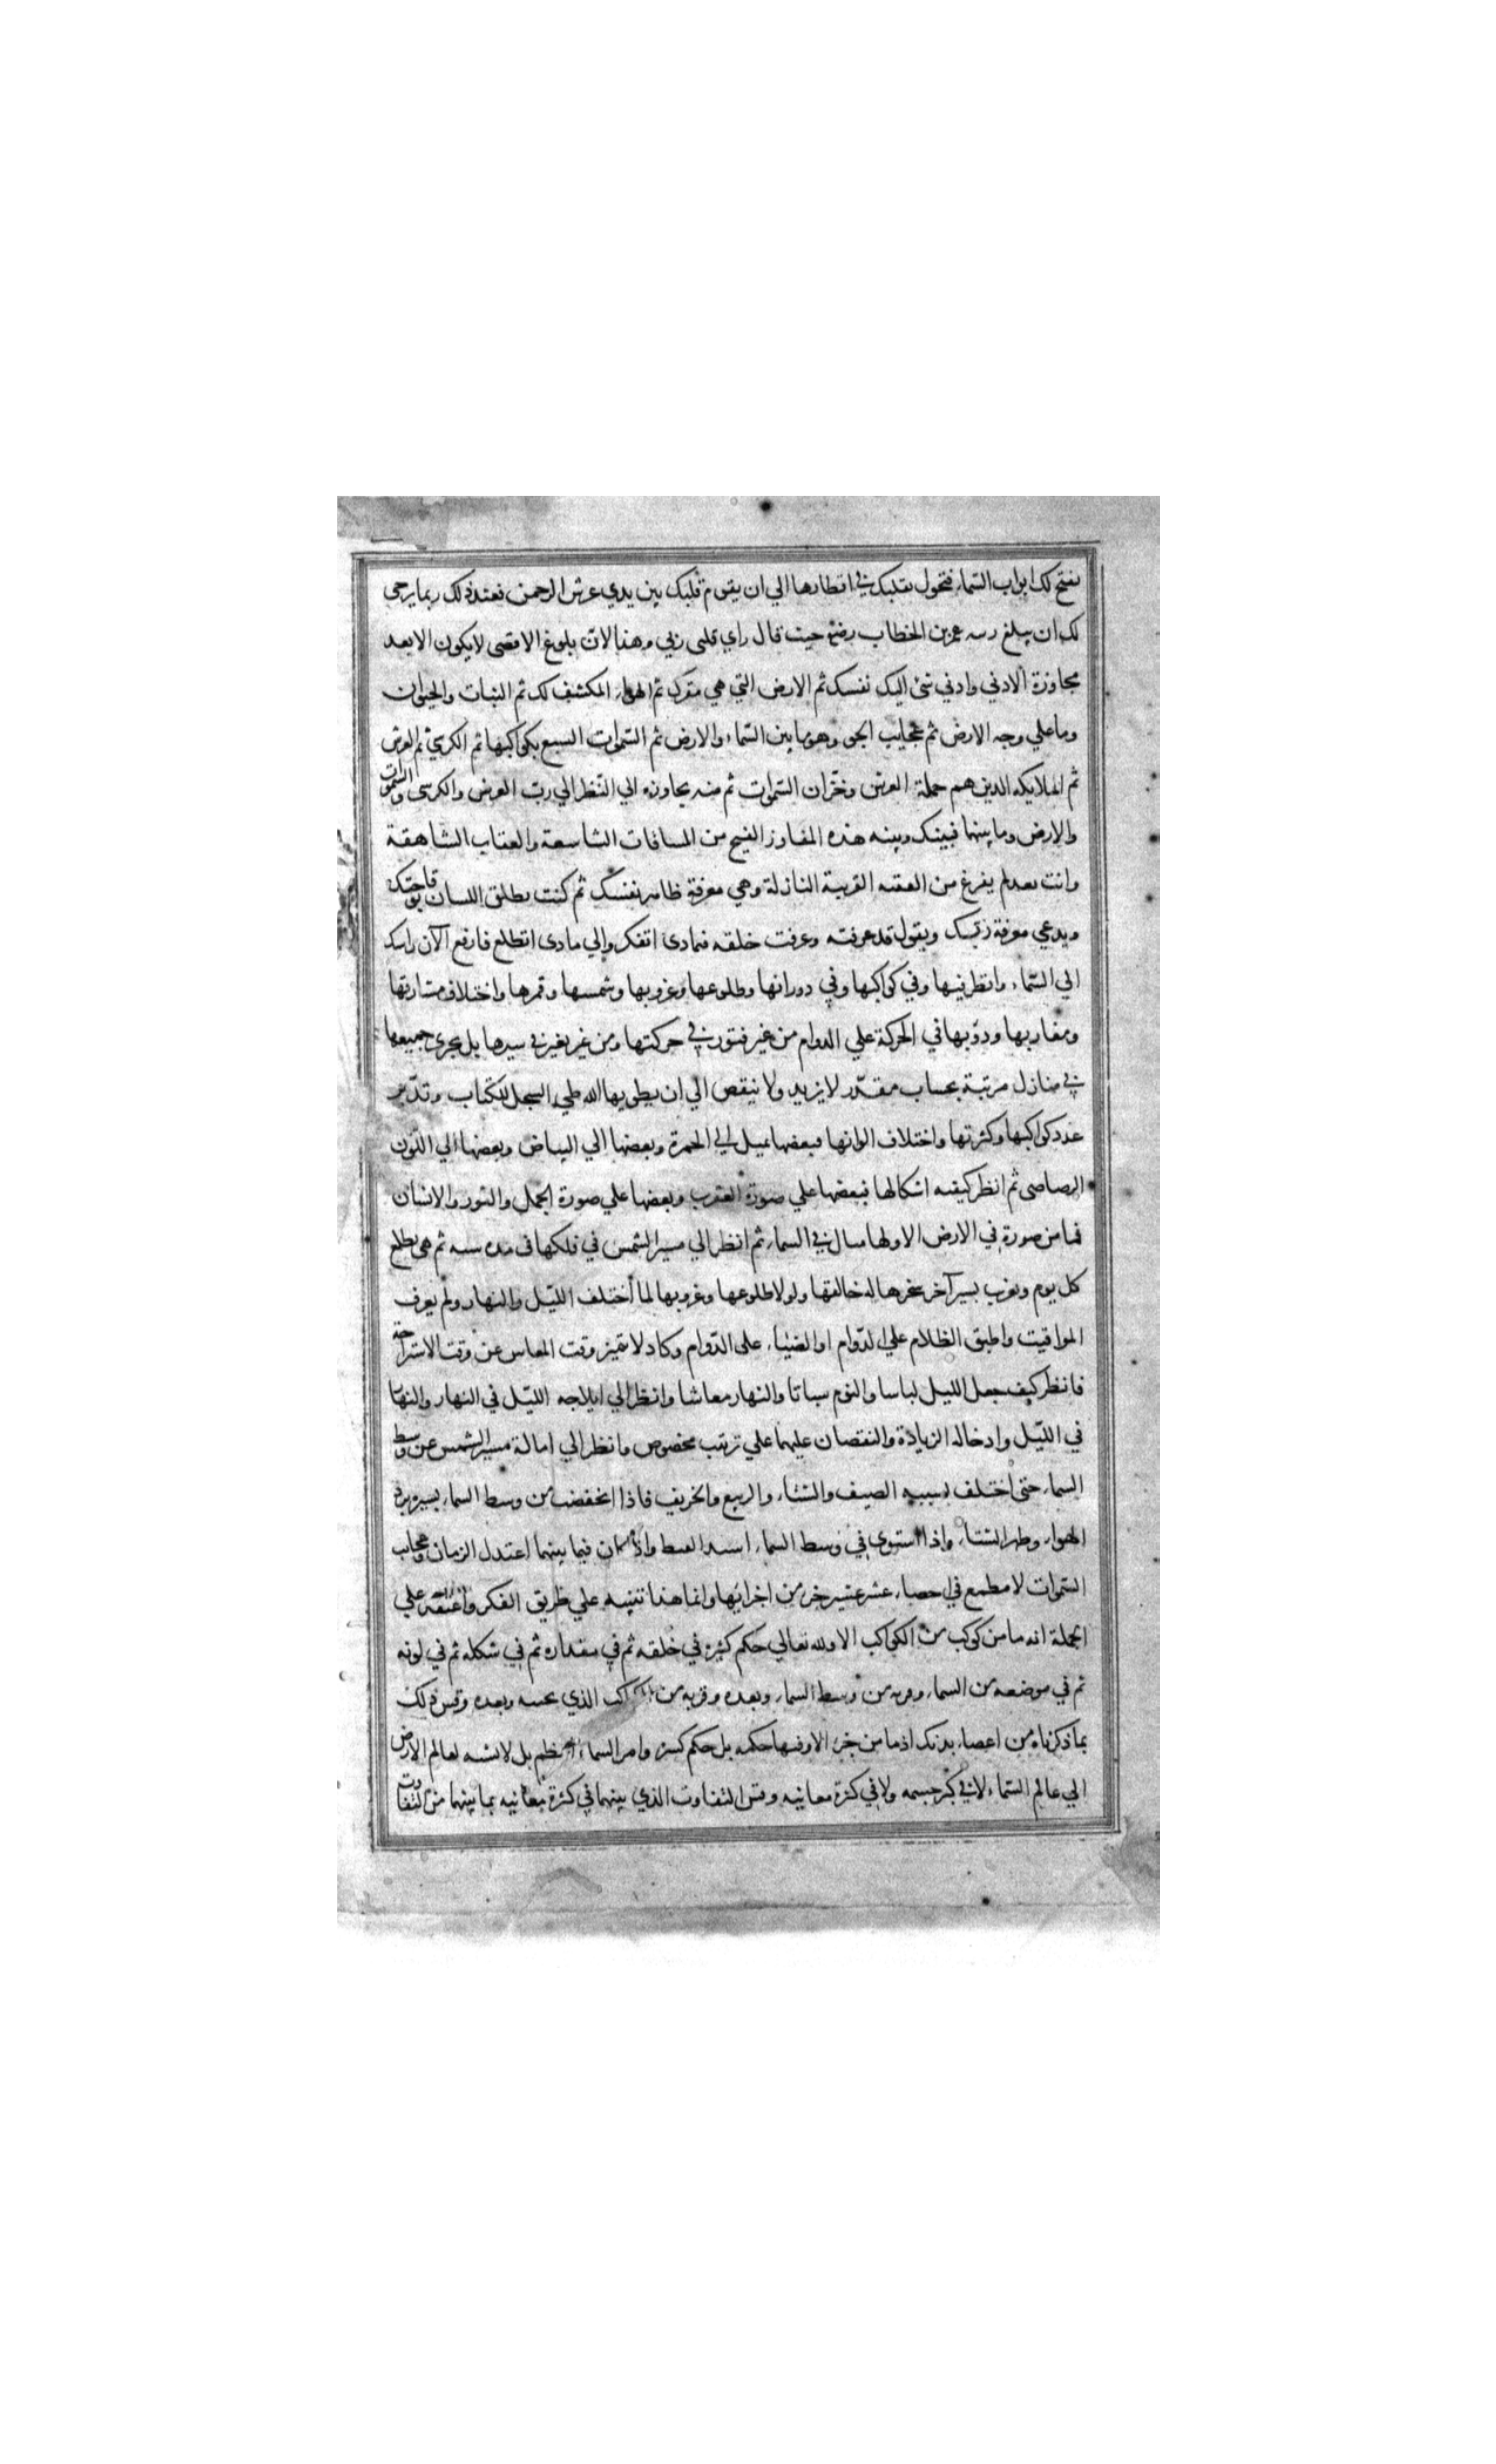 نفتح لك ابواب السماء فتجول بقلبك في اقطارها الي ان يقوم قلبك بين يدي عرش الرحمن فعند ذلك ربما يرجى
لك ان يبلغ رتبه عمر بن الخطاب رضي حيث قال راي قلبي ربي وهذا لان بلوغ الاقصى لا يكون الا بعد
مجاوزة الادني وادني شئ اليك نفسك ثم الارض التي هي مقرك ثم الهواء المكتنف لك ثم النبات والحيوان
وما علي وجه الارض ثم عجايب الجو وهو ما بين السماء والارض ثم السموات السبع بكواكبها ثم الكرسي ثم العرش
ثم الملايكه الذين هم حملة العرش وخزان السموات ثم منه يجاوزه الي النظر الي رب العرش والكرسى والسموات
والارض وما بينهما فبينك وبينه هذه المفاوز الفيح من المسافات الشاسعة والعقاب الشاهقة
وانت بعد لم يفرغ من العقبه القريبة النازلة وهي معرفة ظاهر نفسك ثم كنت يطلق اللسان بوقاحتك
ويدعي معرفة ربك ويقول قد عرفته وعرفت خلقه فبماذى اتفكر والي ماذى اتطلع فارفع الآن راسك
الي السماء وانظر فيها وفي كواكبها وفي دورانها وطلوعها وغروبها وشمسها وقمرها واختلاف مشارقها
ومغاربها ودؤبها في الحركة علي الدوام من غير فتور في حركتها ومن غير تغير في سيرها بل يجرى جميعها
في منازل مرتبة بحساب مقدر لا يزيد ولا ينقص الي ان يطويها الله طي السجل للكتاب وتدبر
عدد كواكبها وكثرتها واختلاف الوانها فبعضها يميل الي الحمرة وبعضها الي البياض وبعضها الي اللون
الرصاصى ثم انظر كيفيه اشكالها فبعضها علي صورة العقرب وبعضها علي صورة الحمل والثور والانسان
فما من صورة في الارض الا ولها مثال في السماء ثم انظر الي مسير الشمس في فلكها فى مده سنه ثم هى تطلع
كل يوم وتغرب بسير آخر سخرها له خالقها ولولا طلوعها وغروبها لما اختلف الليل والنهار ولم يعرف
المواقيت واطبق الظلام علي الدوام او الضياء على الدوام وكاد لا يتميز وقت المعاش عن وقت الاستراحة
فانظر كيف جعل الليل لباسا والنوم سباتا والنهار معاشا وانظر الي ايلاجه الليل في النهار والنهار
في الليل وادخاله الزيادة والنقصان عليهما علي ترتيب مخصوص وانظر الي امالة مسير الشمس عن وسط
السماء حتى اختلف بسببه الصيف والشتاء والربيع والخريف فاذا انخفضت من وسط السماء بسيره برد
الهواء وظهر الشتاء واذا استوى في وسط السماء اشتد القيظ واذا كان فيما بينهما اعتدل الزمان وعجايب
السموات لا مطمع في احصاء عشر عشير جزء من اجزائها وانما هذا تنبيه علي طريق الفكر واعتقد علي
الجملة انه ما من كوكب من الكواكب الا ولله تعالي حكم كثيرة في خلقه ثم في مقداره ثم في شكله ثم في لونه
ثم في موضعه من السماء وقربه من وسط السماء وبعده وقربه من الكواكب الذي بجنبه وبعده وقس ذلك
بما ذكرناه من اعضاء بدنك اذ ما من جزء الا وفيها حكمه بل حكم كثيره وامر السماء اعظم بل لا نسبه لعالم الارض
الي عالم السماء لا في كبر جسمه ولا في كثرة معانيه وقس التفاوت الذي بينهما في كثرة معانيه بما بينهما من التفاوت